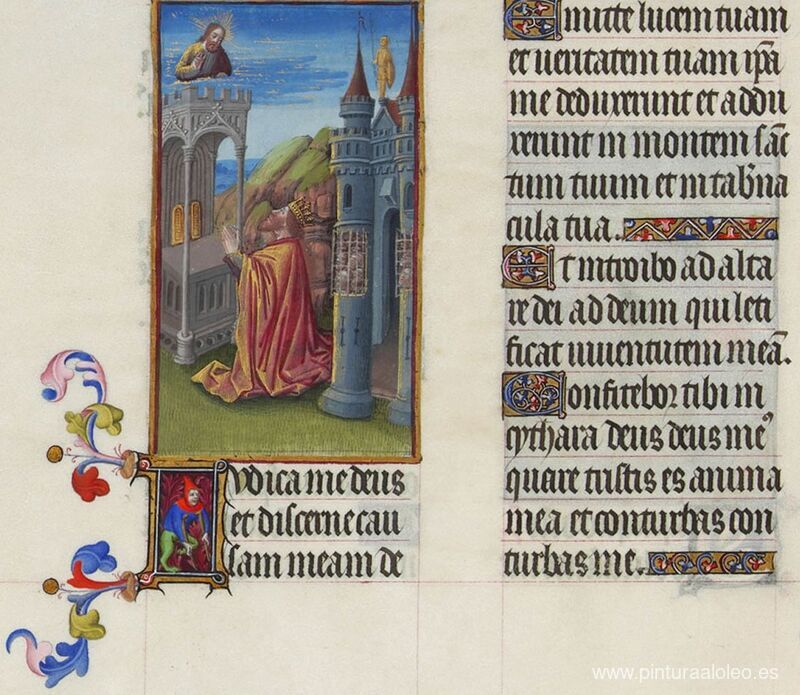 Iudica me deus
et discerne cau
sam meam de
Emitte lucem tuam
et ueritatem tuam ip̄a
me deduxerunt et addu
xerunt in montem sāc
tum tuum et in tab̄na
cula tua.
Et introibo ad alta
re dei ad deum qui leti
ficat iuuentutem meā.
Confitebor tibi in
cythara deus deus meꝰ
quare tristis es anima
mea et conturbas con
turbas me.
www.pinturaaloleo.es